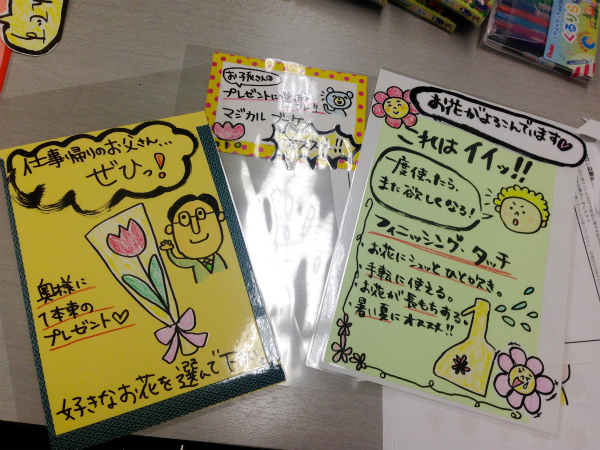 です
仕事帰りのお父さん...
ぜひっ!
奥様に
1本束の
プレゼント♡
好きなお花を選んで下さい
お子衣さんの
プレゼントに
マジカル ブーケ
オススメ!!
お花がよろこんでいます♡
これはイイッ!!
一度使ったら、
また欲しくなる!
フィニッシング・タッチ
お花にシュッとひと吹き。
手軽に使える。
お花が長もちある
暑い夏にオススメ!!
くるりら
Pentel